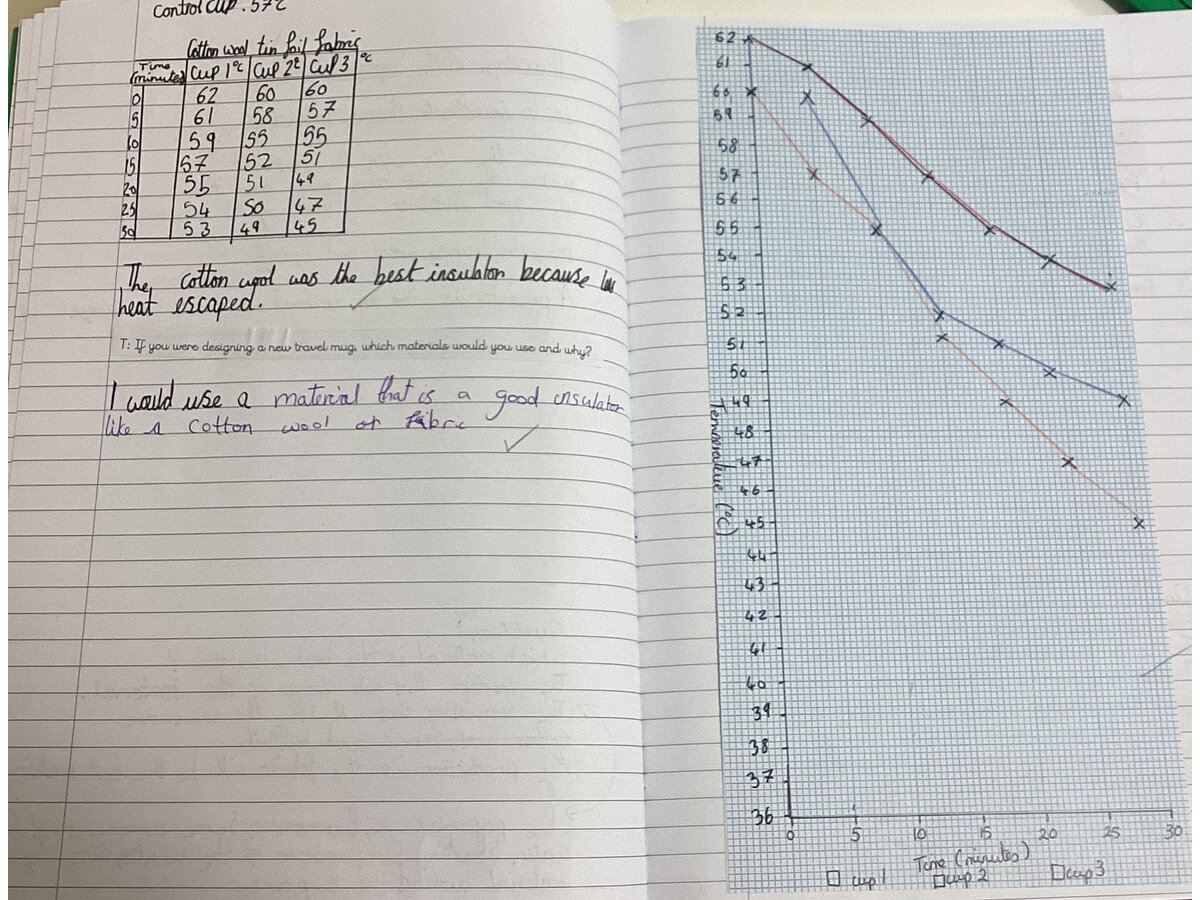 Control cup . 57°C
Cotton wool tin foil fabric
Time (minutes) Cup 1°C Cup 2°C Cup 3 °C
0 62 60 60
5 61 58 57
10 59 55 55
15 57 52 51
20 55 51 49
25 54 50 47
30 53 49 45
The cotton wool was the best insulator because
heat escaped.
T: If you were designing a new travel mug, which materials would you use and why?
I would use a material that is a good insulator
like a cotton wool or fabric
62
61
60
59
58
57
56
55
54
53
52
51
50
49
48
47
46
45
44
43
42
41
40
39
38
37
36
Temperature (°C)
0 5 10 15 20 25 30
Time (minutes)
cup 1 cup 2 cup 3